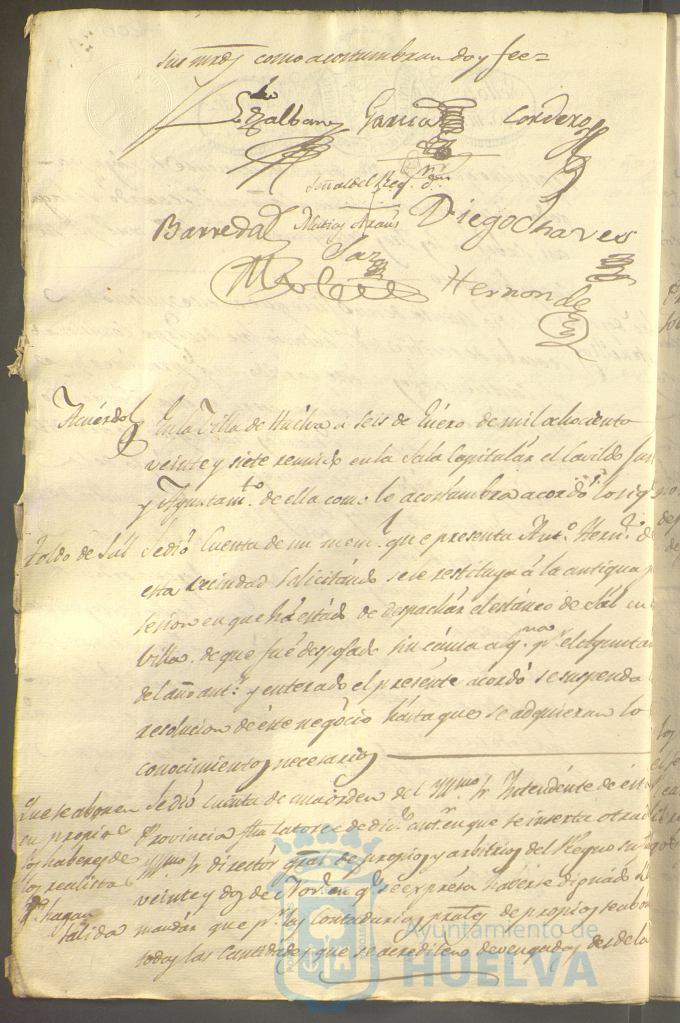 sus mrds como acostumbran doy fee=
Garcia Cordero
Señal del Reg.r
Barreda Matias Diego Chaves
Hernandez
Acuerdo En la Villa de Huelva a seis de Enero de mil ochociento
veinte y siete reunido en la Sala Capitular el Cavildo Jus
y Ayuntam.to de ella como lo acostumbra acordó lo sig
Toldo de Sal Se dió Cuenta de un mem.l que presenta Ant.o Hern.z de
esta vecindad solicitando se le restituya á la antigua p
sesion en que há estado de despachar el estanco de Sal en
Villa, de que fué desposado sin causa alg.na p.r el Ayunta
del año ant.r y enterado el presente acordó se suspenda
resolucion de este negócio hasta que se adquieran lo
conocimientos necesarios
Que se abonen en propios los haberes de los realistas q.e hagan salida
Se dió cuenta de una orden del Yllmo S.r Yntendente de est
Provincia fha catorce de dic.e ant.r en que se inserta otra
Yllmo S.r director gral de propios y arbitrios del Reyno su
veinte y dos de Nov.e en q.e se expresa haverse dignado
mandar que p.r las Contadurias prales de propios se abon
todas las Cantidades que se acrediten devengadas desde la
Ayuntamiento de
HUELVA